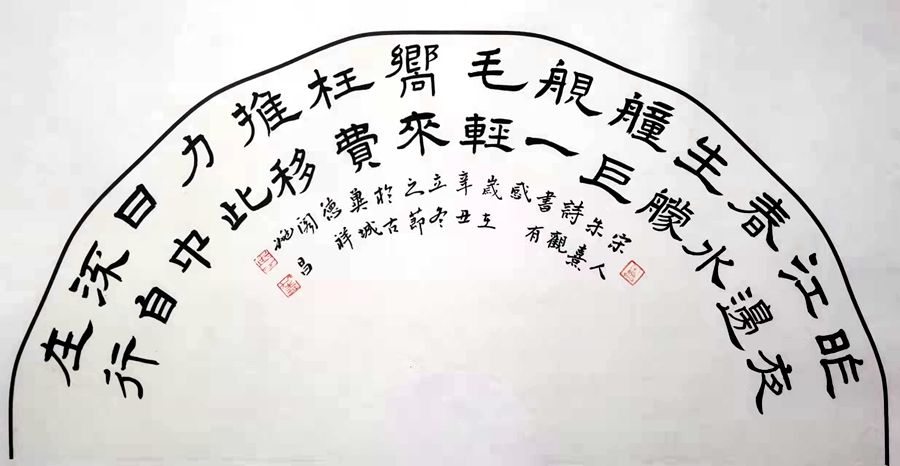 昨夜
江邊
春水
生艨
艟巨
舰一
毛輕
嚮來
枉費
推移
力此
日中
流自
在行
宋人
朱熹
詩觀
書有
感
嵗在
辛丑
立冬
之節
於古
冀城
德祥
閣
昌